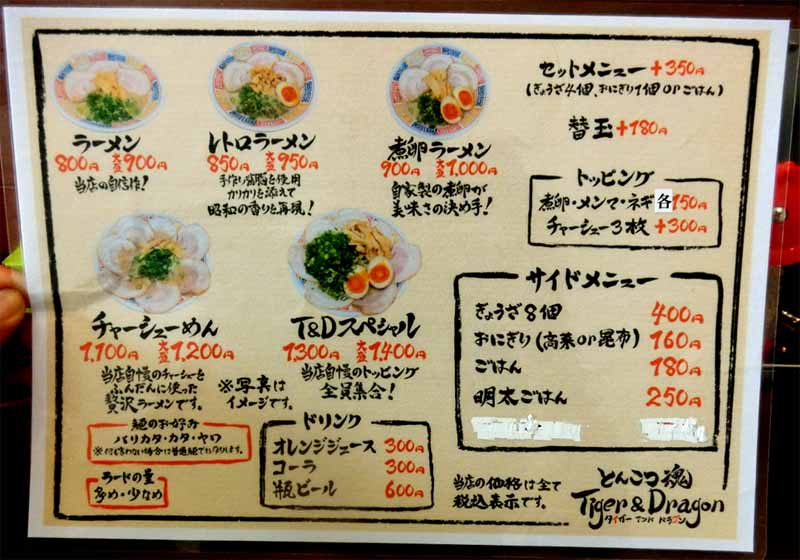 ラーメン
800円 大盛900円
当店の自信作!
レトロラーメン
850円 大盛950円
手作り背脂を使用
カリカリを添えて
昭和の香りを再現!
煮卵ラーメン
900円 大盛1,000円
自家製の煮卵が
美味さの決め手!
チャーシューめん
1,100円 大盛1,200円
当店自慢のチャーシューを
ふんだんに使った
贅沢ラーメンです。
※写真は
イメージです。
T&Dスペシャル
1,300円 大盛1,400円
当店自慢のトッピング
全員集合!
麺のお好み
バリカタ・カタ・ヤワ
ラードの量
多め・少なめ
ドリンク
オレンジジュース 300円
コーラ 300円
瓶ビール 600円
セットメニュー +350円
(ぎょうざ4個、おにぎり1個orごはん)
替玉 +180円
トッピング
煮卵・メンマ・ネギ 各150円
チャーシュー3枚 +300円
サイドメニュー
ぎょうざ8個 400円
おにぎり(高菜or昆布) 160円
ごはん 180円
明太ごはん 250円
当店の価格は全て
税込表示です。
とんこつ魂
Tiger & Dragon
タイガー アンド ドラゴン